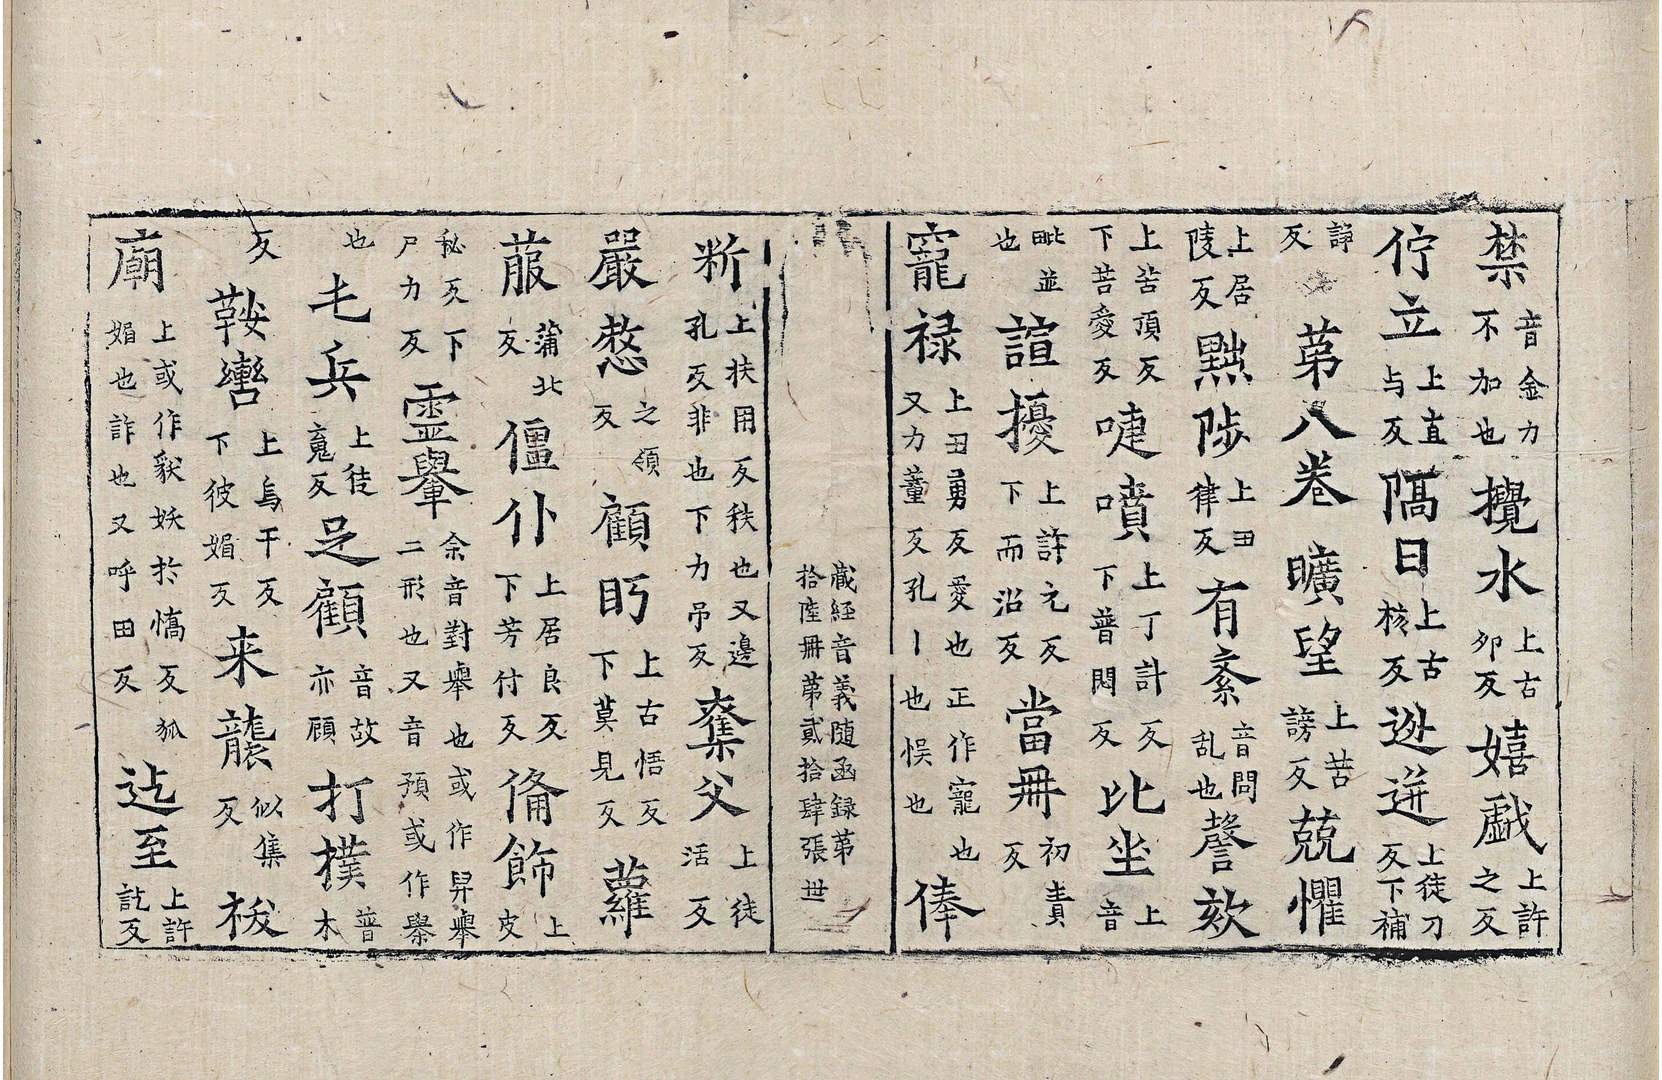 禁音金力不加也攪水上古夘反嬉戲上許之反
佇立上直与反隔日上古核反逊迸上徒刀反下補
諍反苐八卷曠望上苦謗反兢懼
上居陵反黜陟上丑律反有紊音問乱也謦欬
上苦頂反下苦愛反啑噴上丁計反下普悶反比坐上音
毗並也諠擾上許元反下而沼反當冊初責反
寵禄上丑勇反愛也正作寵也又力董反孔丨也悮也俸
藏経音義随函録苐
拾陸冊苐貳拾肆張 世
断上扶用反秩也又邊孔反非也下力吊反奪父上徒活反
嚴憗之領反顧眄上古悟反下莫見反蘿
菔蒲北反僵仆上居良反下芳付反俻飾上皮
秘反下尸力反靈轝余音對轝也或作舁轝二形也又音預或作舉
也乇兵上徒嵬反足顧音故亦頋打撲普木
反鞍轡上烏干反下彼媚反来襲似集反袚
廟上或作猒妖於憍反狐媚也詐也又呼田反迄至上許訖反